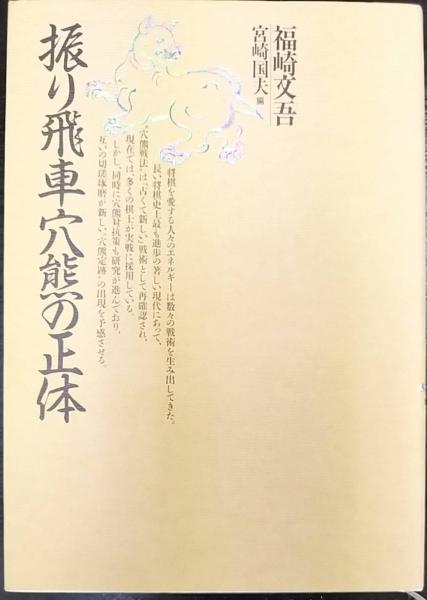 福崎文吾
宮崎国夫 編
将棋を愛する人々のエネルギーは数々の戦術を生み出してきた。
長い将棋史上最も進歩の著しい現代にあって、
“穴熊戦法”は「古くて新しい」戦術として再確認され、
現在では、多くの棋士が実戦に採用している。
しかし、同時に穴熊対抗策も研究が進んでおり、
互いの切磋琢磨が新しい“穴熊定跡”の出現を予感させる。
振り飛車穴熊の正体